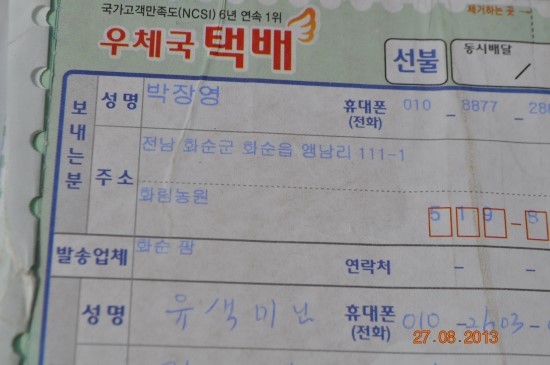 국가고객만족도(NCSI) 6년 연속 1위
제거하는 곳
우체국 택배
선불
동시배달
/
보내는분
성명 박장영 휴대폰 (전화) 010 - 8877 - 288
주소 전남 화순군 화순읍 앵남리 111-1
화림농원
519-8
발송업체 화순 팜 연락처 - -
성명 유색미난 휴대폰 (전화) 010 - 2603 -
27.08.2013